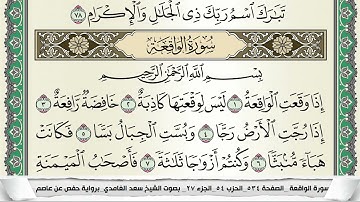 تَبَٰرَكَ ٱسْمُ رَبِّكَ ذِى ٱلْجَلَٰلِ وَٱلْإِكْرَامِ ٧٨
سُورَةُ الوَاقِعَةِ
بِسْمِ ٱللَّهِ ٱلرَّحْمَٰنِ ٱلرَّحِيمِ
إِذَا وَقَعَتِ ٱلْوَاقِعَةُ ١ لَيْسَ لِوَقْعَتِهَا كَاذِبَةٌ ٢ خَافِضَةٌ رَّافِعَةٌ ٣
إِذَا رُجَّتِ ٱلْأَرْضُ رَجًّا ٤ وَبُسَّتِ ٱلْجِبَالُ بَسًّا ٥ فَكَانَتْ
هَبَآءً مُّنۢبَثًّا ٦ وَكُنتُمْ أَزْوَٰجًا ثَلَٰثَةً ٧ فَأَصْحَٰبُ ٱلْمَيْمَنَةِ
سورة الواقعة الصفحة ٥٣٤ الحزب ٥٤ الجزء ٢٧ بصوت الشيخ سعد الغامدي برواية حفص عن عاصم